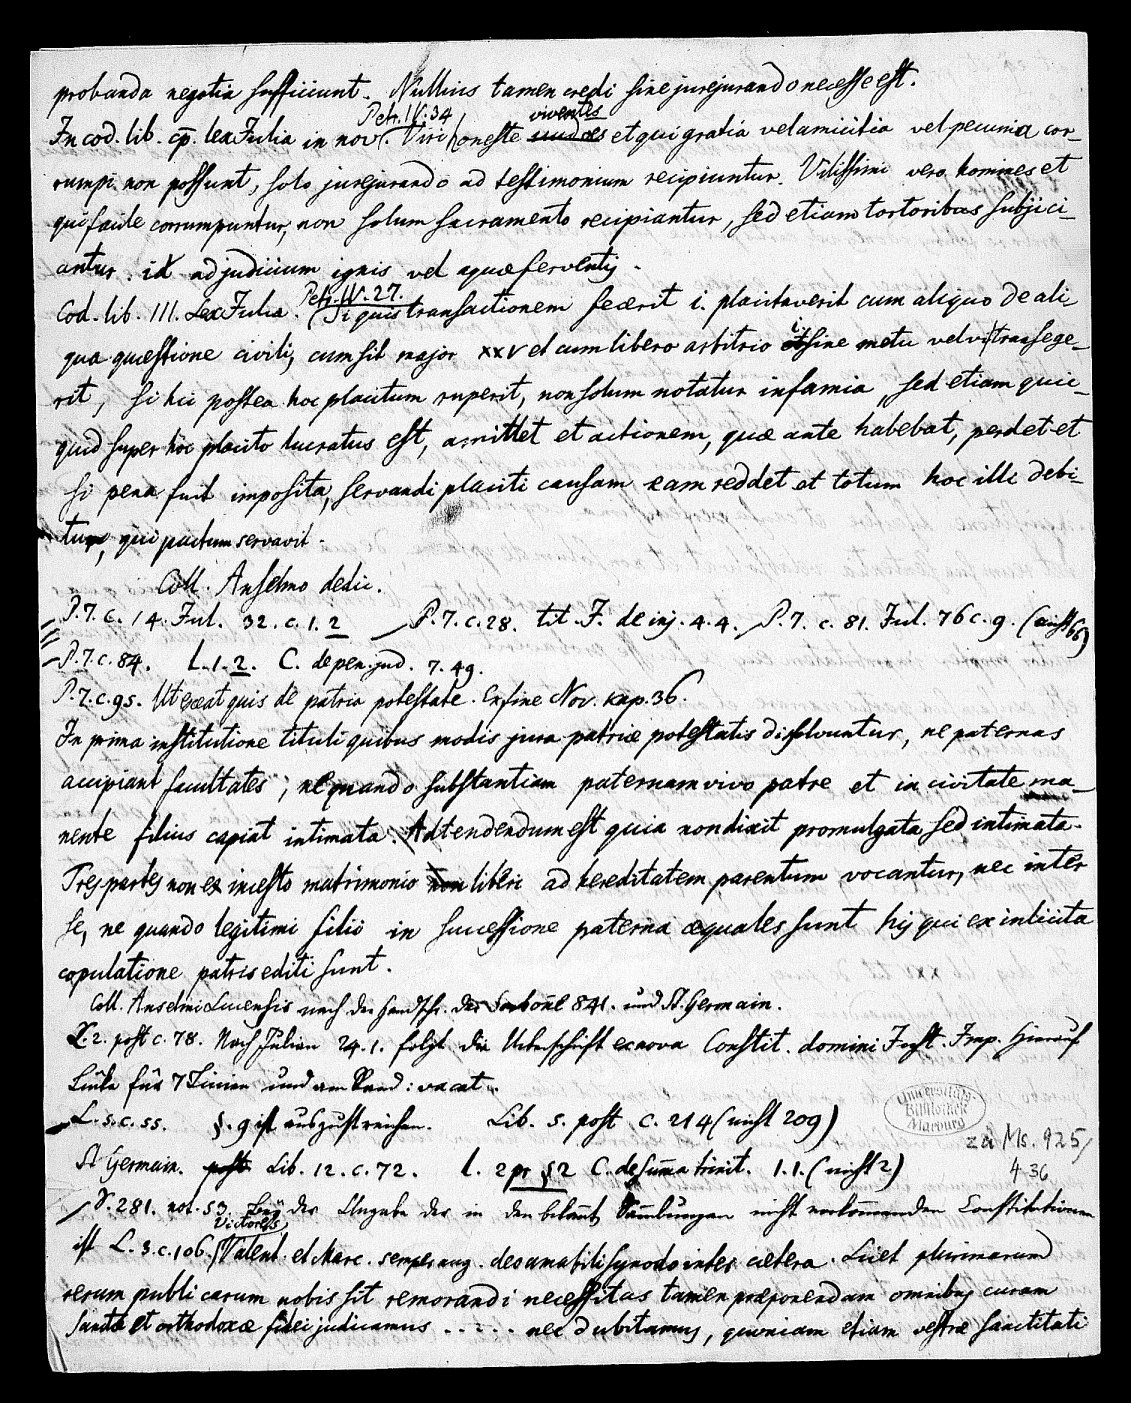 probanda negotia sufficiunt. Nullius tamen credi sine jurejurando necesse est.
Petr. IV. 34 viventes
In cod. lib. cp. lex Julia in nov. Viri honeste et qui gratia vel amicitia vel pecunia cor-
rumpi non possunt, solo jurejurando ad testimonium recipiuntur. Vilissimi vero homines et
qui facile corrumpuntur, non solum sacramento recipiantur, sed etiam tortoribus subjici-
antur. id ad judicium ignis vel aquae ferventis.
Petr. IV. 27.
Cod. lib. III. Lex Julia. Si quis transactionem fecerit i. placitaverit cum aliquo de ali
qua quaestione civili, cum sit major XXV et cum libero arbitrio et sine metu vel vi transege-
rit, si hic postea hoc placitum ruperit, non solum notatur infamia, sed etiam quic-
quid super hoc placito lucratus est, amittet et actionem, quae ante habebat, perdet et
si pena fuit imposita, servandi placiti causam eam reddet et totum hoc illi debi-
tur, qui pactum servavit.
Coll. Anselmo dedic.
P. 7. c. 14. Jul. 32. c. 1. 2 P. 7. c. 28. tit. J. de inj. 4. 4. P. 7. c. 81. Jul. 76 c. 9. (nicht 66)
P. 7. c. 84. L. 1. 2. C. de pen. jud. 7. 49.
P. 7. c. 95. Ut exeat quis de patria potestate. Ex fine Nov. kap. 36.
In prima institutione tituli quibus modis jura patriae potestatis dissolvuntur, ne paternas
accipiant facultates; ne quando substantiam paternam vivo patre et in civitate ma-
nente filius capiat intimata. Adtendendum est quia non dixit promulgata sed intimata.
Tres partes non ex incesto matrimonio liberi ad hereditatem parentum vocantur, nec inter
se, ne quando legitimi filii in successione paterna aequales sunt hij qui ex inlicita
copulatione patris editi sunt.
Coll. Anselmi Lucensis nach der Handschr. der Sorbonne 841. und St. Germain.
L. 2. post c. 78. Nach Julian 24. 1. folgt die Ueberschrift ex nova Constit. domini Just. Imp. Hierauf
Lücke für 7 Linien und am Rand: vacat.
L. 5. c. 55. §. 9 ist auszustreichen. Lib. 5. post c. 214 (nicht 209)
St Germain. Lib. 12. c. 72. l. 2 pr § 2 C. de summa trinit. 1. 1. (nicht 2)
S. 281. not. 53. Bey der Angabe der in den bekannt. Sammlungen nicht vorkommenden Constitutionen
Victores
ist L. 3. c. 106. Valent. et Marc. semper aug. deo amabili synodo inter cetera. Licet plurimarum
rerum publicarum nobis sit remorandi necessitas tamen praeponendam omnibus curam
sancte et orthodoxae fidei judicamus . . . . . nec dubitamus, quoniam etiam vestrae sanctitati
Universitäts-
Bibliothek
Marburg
zu Ms. 925/
4 36